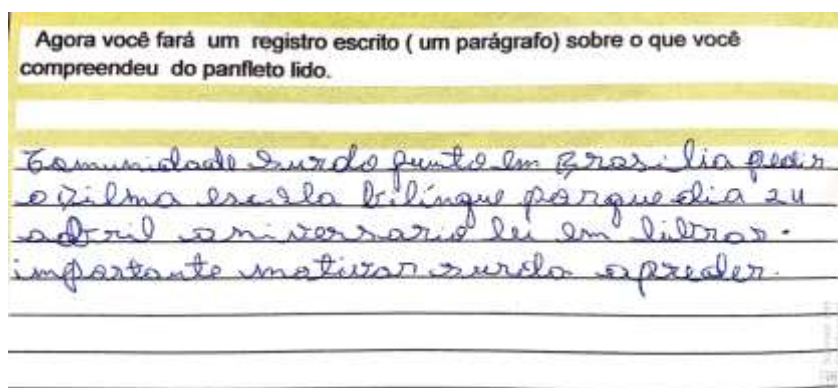 Agora você fará um registro escrito ( um parágrafo) sobre o que você
compreendeu do panfleto lido.
Comunidade surdo junto em Brasilia pedir
a Dilma escola bilíngue porque dia 24
abril aniversario lei em libras.
importante motivar surdo apreder.